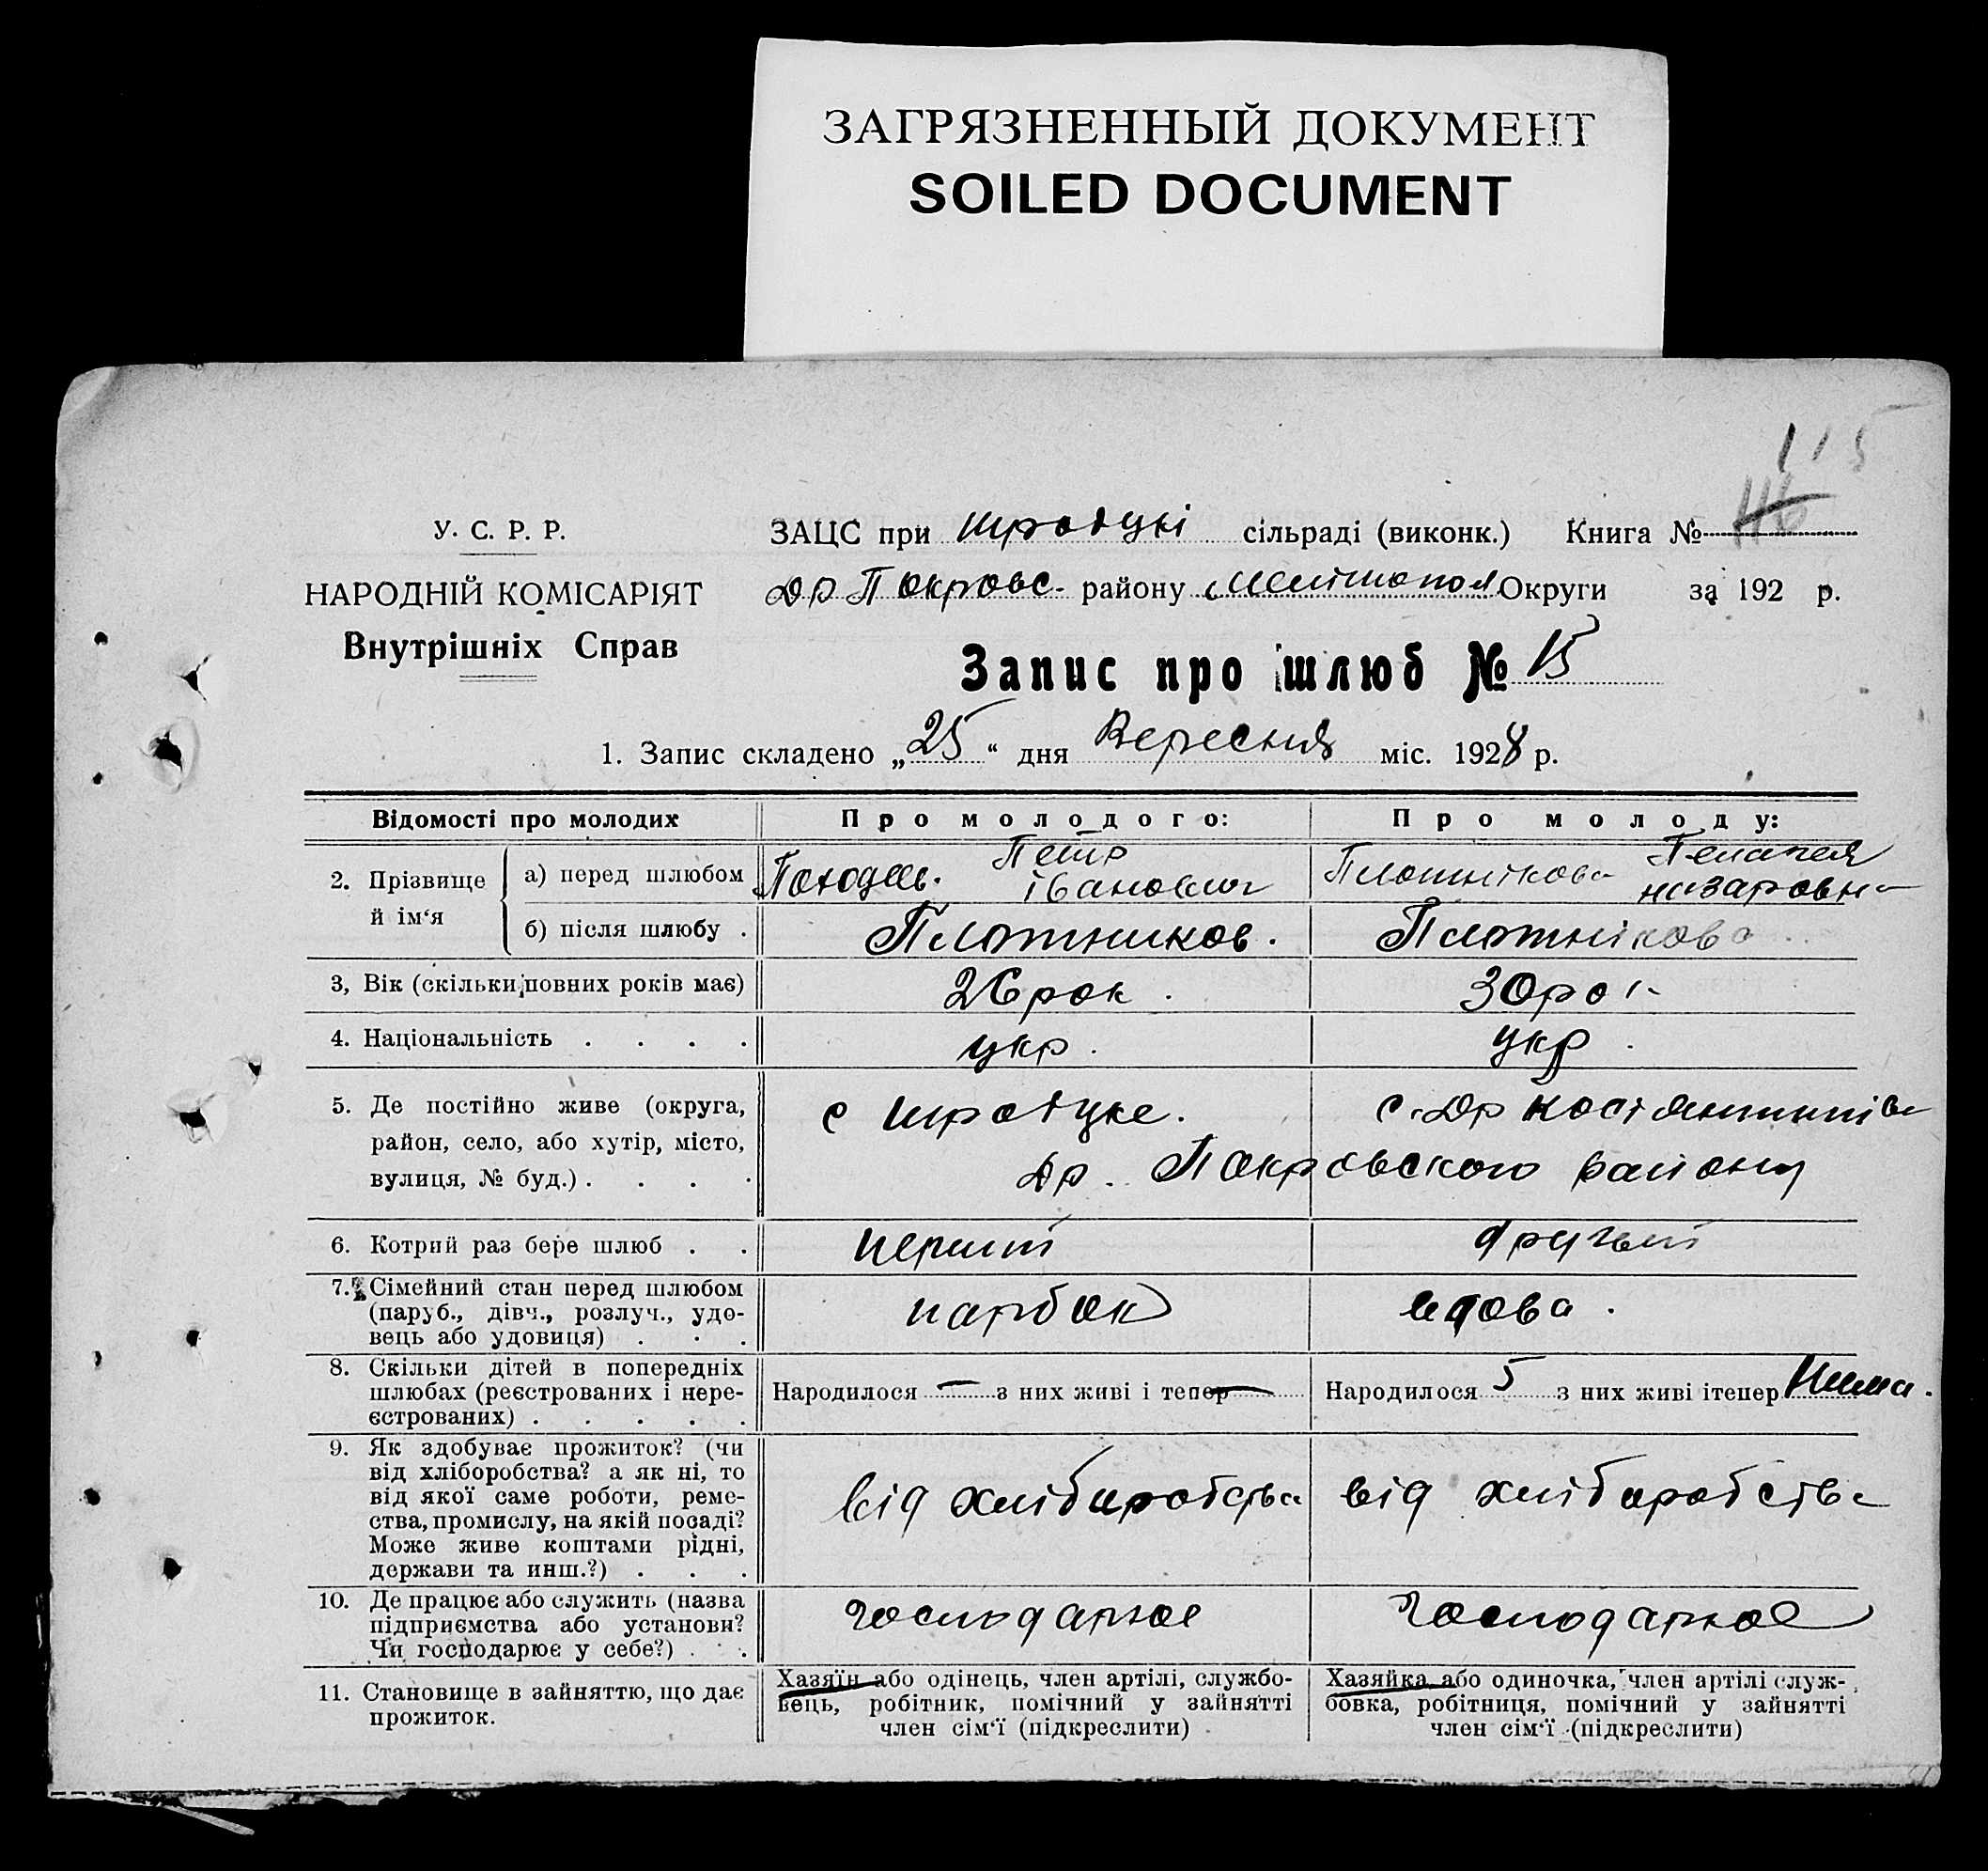 ЗАГРЯЗНЕННЫЙ ДОКУМЕНТ
SOILED DOCUMENT
115
116
У. С. Р. Р.
НАРОДНІЙ КОМІСАРІЯТ
Внутрішніх Справ
ЗАЦС при сільраді (виконк.) Книга №
Др Покровс. району Округи за 192 р.
Запис про шлюб № 15
1. Запис складено „25“ дня Вересния міс. 1928 р.
Відомості про молодих
Про молодого:
Про молоду:
2. Прізвище й ім‘я
а) перед шлюбом
Петр
Іванович
Плотнікова Пелагея
назаровна
б) після шлюбу .
Плотников.
Плотнікова
3, Вік (скільки повних років має)
26 рок.
30 рок
4. Національність . . . .
укр.
укр.
5. Де постійно живе (округа,
район, село, або хутір, місто,
вулиця, № буд.) . . . .
с
с. Др
Др. Покровского району
6. Котрий раз бере шлюб . .
перший
другый
7. Сімейний стан перед шлюбом
(паруб., дівч., розлуч., удо-
вець або удовиця) . . .
парбок
вдова.
8. Скільки дітей в попередніх
шлюбах (реєстрованих і нере-
єстрованих) . . . . .
Народилося — з них живі і тепер —
Народилося 5 з них живі ітепер Нима.
9. Як здобуває прожиток? (чи
від хліборобства? а як ні, то
від якої саме роботи, реме-
ства, промислу, на якій посаді?
Може живе коштами рідні,
держави та инш.?) . . .
від хліборобства
від хліборобства
10. Де працює або служить (назва
підприємства або установи?
Чи господарює у себе?) . .
господарюе
Господарюе
11. Становище в зайняттю, що дає
прожиток.
Хазяїн або одінець, член артілі, службо-
вець, робітник, помічний у зайнятті
член сім‘ї (підкреслити)
Хазяйка або одиночка, член артілі служ-
бовка, робітниця, помічний у зайнятті
член сім‘ї (підкреслити)